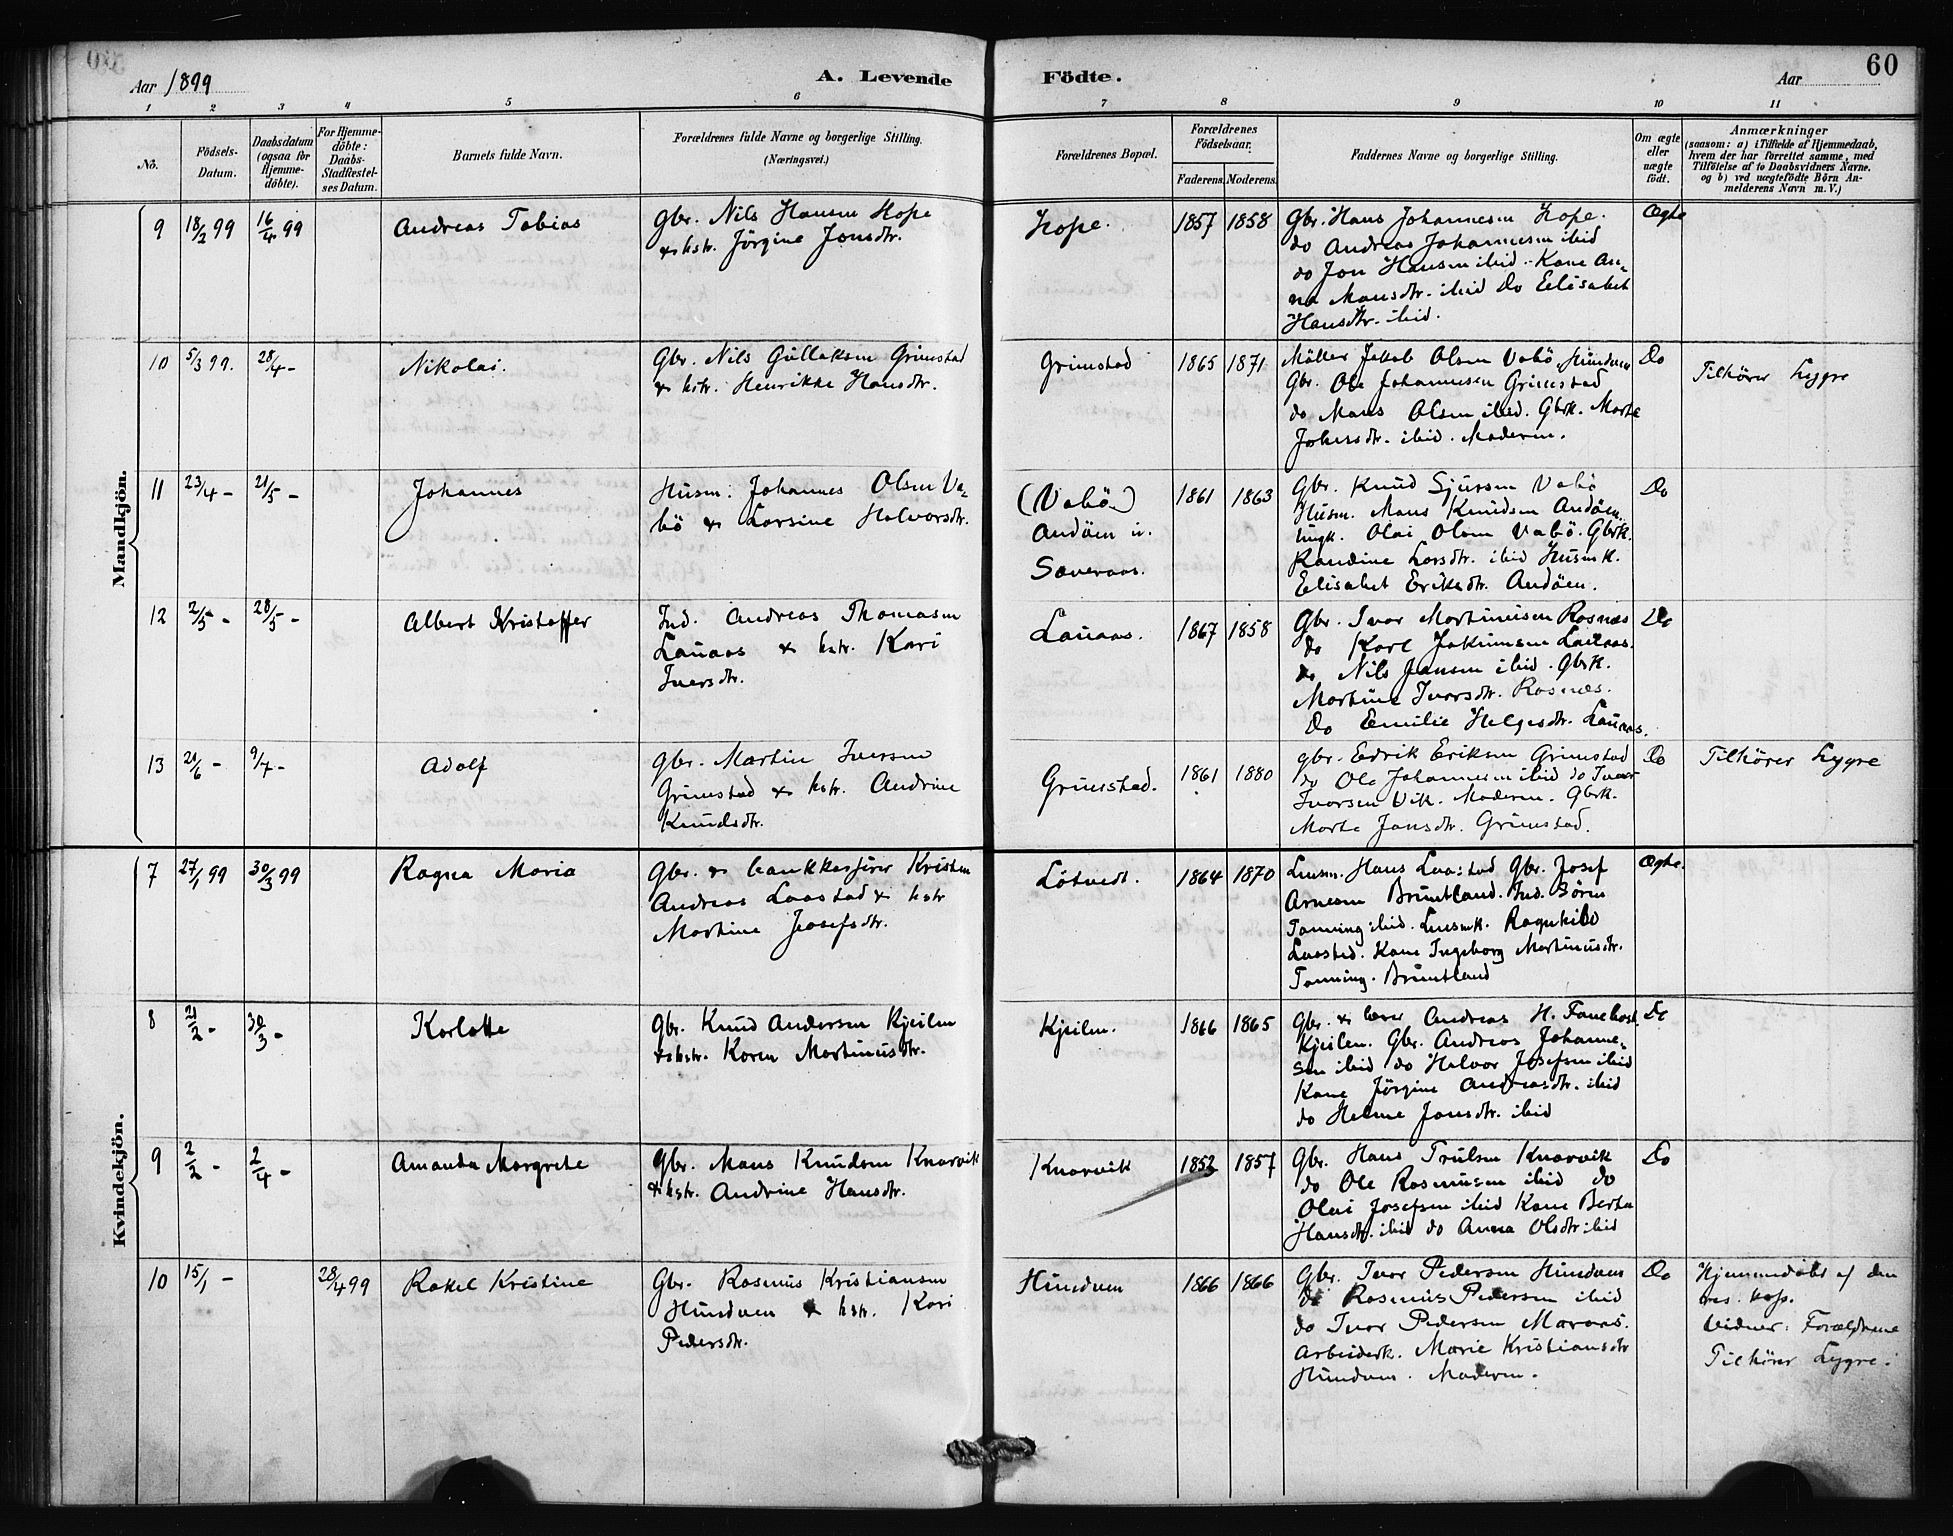 Aar 1899
A. Levende Födte.
Aar
60
1 2 3 4 5 6 7 8 9 10 11
No.
Födsels-
Datum.
Daabsdatum
(ogsaa for
Hjemme-
döbte).
For Hjemme-
döbte:
Daabs-
Stadfæstel-
ses Datum.
Barnets fulde Navn.
Forældrenes fulde Navne og borgerlige Stilling.
(Næringsvei.)
Forældrenes Bopæl.
Forældrenes
Födselsaar.
Faderens. Moderens.
Faddernes Navne og borgerlige Stilling.
Om ægte
eller
uægte
födt.
Anmærkninger
(saasom: a) i Tilfælde af Hjemmedaab,
hvem der har forrettet samme, med
Tilföielse af to Daabsvidners Navne.
og b) ved uægtefödte Börn An-
melderens Navn m. V.)
Mandkjön.
9 18/2 99 16/4 99 Andreas Tobias
Gbr. Nils Hansen Hope
& hstr. Jörgine Jonsdtr.
Hope. 1857 1858
Gbr. Hans Johannesen Hope.
do Andreas Johannesen ibid
do Jon Hansen ibid. Kone An-
na Mansdtr. ibid do Elisabet
Hansdtr. ibid.
Ægte
10 5/3 99. 28/4 - Nikolai.
Gbr. Nils Gullaksen Grimstad
& hstr. Henrikke Hansdtr.
Grimstad 1865 1871
Möller Jakob Olsen Vabö Hundven
Gbr. Ole Johannesen Grimstad
do Mans Olsen ibid. Gbrk. Marte
ibid. Moderen.
Do
Tilhörer Lygre
11 23/4 - 21/5 - Johannes
Husm: Johannes Olsen Va-
bö & Larsine Halvorsdtr.
(Vabö)
Andöen i.
Sæveraas.
1861 1863
Gbr. Knud Sjursen Vabö
Husm. Mans Knudsen Andöen.
Ungk. Olai Olsen Vabö. Gbrk.
Randine Larsdtr. ibid Husmk.
Elisabet Eriksdtr. Andöen.
Do
12 2/5 - 28/5 - Albert Kristoffer
Ind. Andreas Thomasen
Lauaas & hstr. Kari
Iversdtr.
Lauaas. 1867 1858
Gbr. Ivar Martinusen Rosnæs
do Karl Lauaas.
do Nils Jensen ibid. Gbrk.
Martine Ivarsdtr. Rosnæs.
Do Emilie Helgesdtr. Lauaas.
Do
13 21/6 - 9/7 - Adolf
Gbr. Martin Iversen
Grimstad & hstr. Andrine
Knudsdtr.
Grimstad. 1861 1880
Gbr. Edrik Eriksen Grimstad
do Ole Johannesen ibid do Ivar
Ivarsen Vik. Moderen. Gbrk.
Marta Jonsdtr. Grimstad.
Do
Tilhörer Lygre
Kvindekjön.
7 27/1 99 30/3 99 Ragna Maria
Gbr. & bankkasserer Kristen
Andreas Laastad & hstr
Martine Josefsdtr.
Lötvedt. 1864 1870
Lensm. Hans Laastad Gbr. Josef
Arnesen Bruntland. Ind. Sören
Tonning ibid. Lensmk. Ragnhild
Laastad. Kone Ingeborg Martinusdtr.
Tonning. Bruntland
Ægte.
8 21/2 - 30/3 - Karlotte
Gbr. Knud Andersen Kjeilen
& hstr. Karen Martinusdtr.
Kjeilen. 1866 1865
Gbr. & lærer Andreas H. Fanebost
Kjeilen. Gbr. Andreas Johanne-
sen ibid do Halvor Josefsen ibid
Kone Jörgine Andreasdtr. ibid
do Helene Jonsdtr. ibid
Do
9 2/2 - 2/4 - Amanda Margrete
Gbr. Mans Knudsen Knarvik
& hstr. Andrine Hansdtr.
Knarvik 1852 1857
Gbr. Hans Trulsen Knarvik
do Ole Rasmusen ibid do
Olai Josefsen ibid Kone Berta
Hansdtr. ibid do Anna Olsdtr ibid
Do
10 15/1 - 28/4 99 Rakel Kristine
Gbr. Rasmus Kristiansen
Hundven & hstr. Kari
Pedersdtr.
Hundven 1866 1866
Gbr. Ivar Pedersen Hundven
do Rasmus Pedersen ibid
do Ivar Pedersen Maraas.
Arbeiderk. Marie Kristiansdtr
Hundven. Moderen.
Do
Hjemmedöbt af den
res. kap.
Vidner: Forældrene
Tilhörer Lygre.